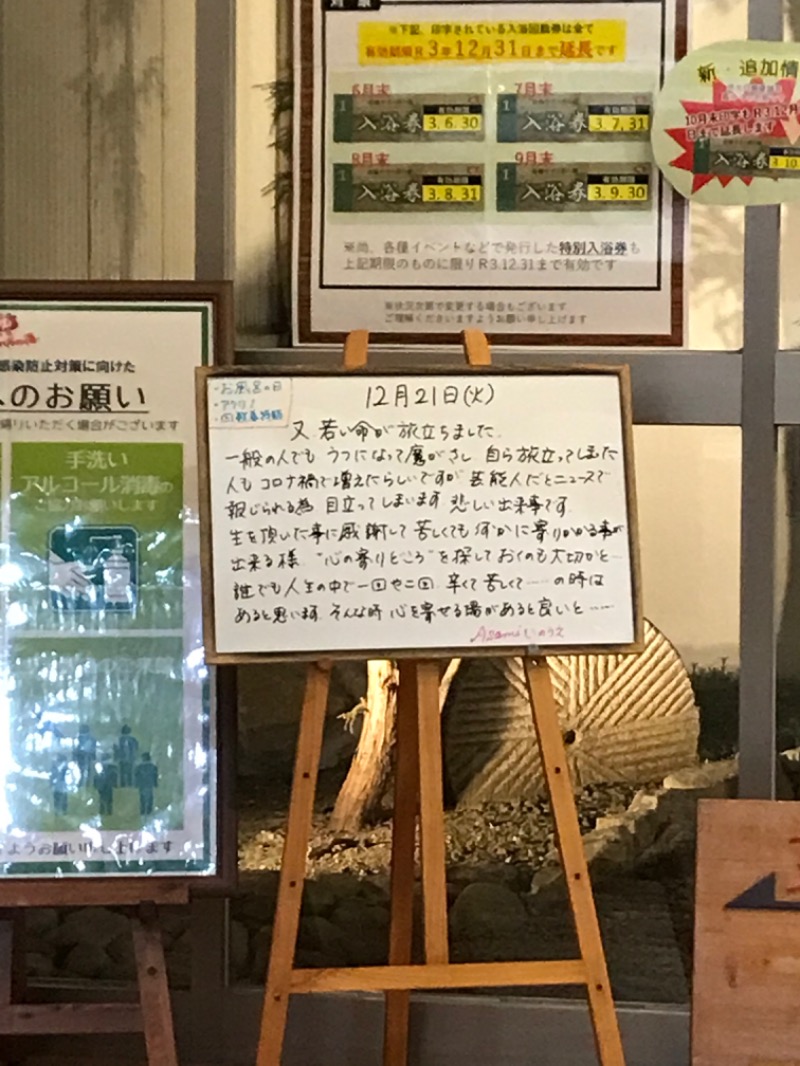 ※下記、印字されている入浴回数券は全て
有効期限R3年12月31日まで延長です
6月末
7月末
1
入浴券
有効期限
3.6.30
1
入浴券
有効期限
3.7.31
8月末
9月末
1
入浴券
有効期限
3.8.31
1
入浴券
有効期限
3.9.30
※尚、各種イベントなどで発行した特別入浴券も
上記期限のものに限りR3.12.31まで有効です
※状況次第で変更する場合もございます
ご理解くださいますようお願い申し上げます
新・追加情
10月末印字もR3.12月
日まで延長します
入浴券
3.10.
感染防止対策に向けた
のお願い
帰りいただく場合がございます
手洗い
アルコール消毒の
ご協力お願いします
ようお願い申し上げます
・お風呂の日
・アクリ
12月21日(火)
又 若い命が旅立ちました
一般の人でも うつになって魔がさし 自ら旅立ってしまった
人もコロナ禍で増えたらしいですが 芸能人だとニュースで
報じられる為 目立ってしまいます 悲しい出来事です
生を頂いた事に感謝して 苦しくても 何かに寄りかかる事が
出来る様 "心の寄りどころ"を探しておくのも大切かと…
誰でも人生の中で一回や二回 辛くて苦しくて……の時は
あると思います そんな時 心を寄せる場があると良いと……
Asami いのうえ